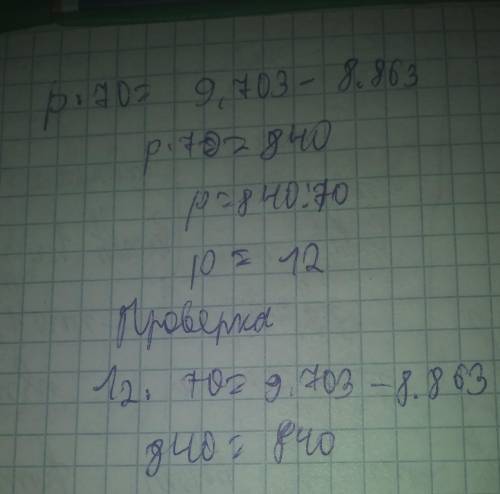 p·70= 9.703 - 8.863
p·70=840
p=840:70
p = 12
Проверка
12· 70=9.703 -8.863
840= 840